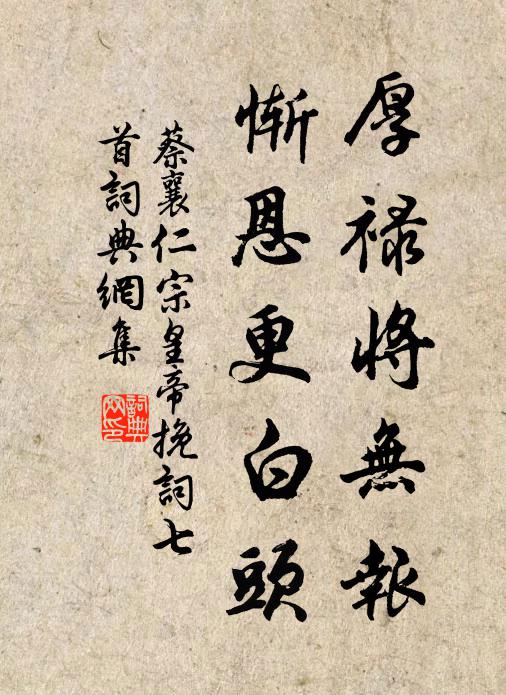 厚祿將無報
慚恩更白頭
蔡襄仁宗皇帝挽詞七
首詞典網集
詞典
網印